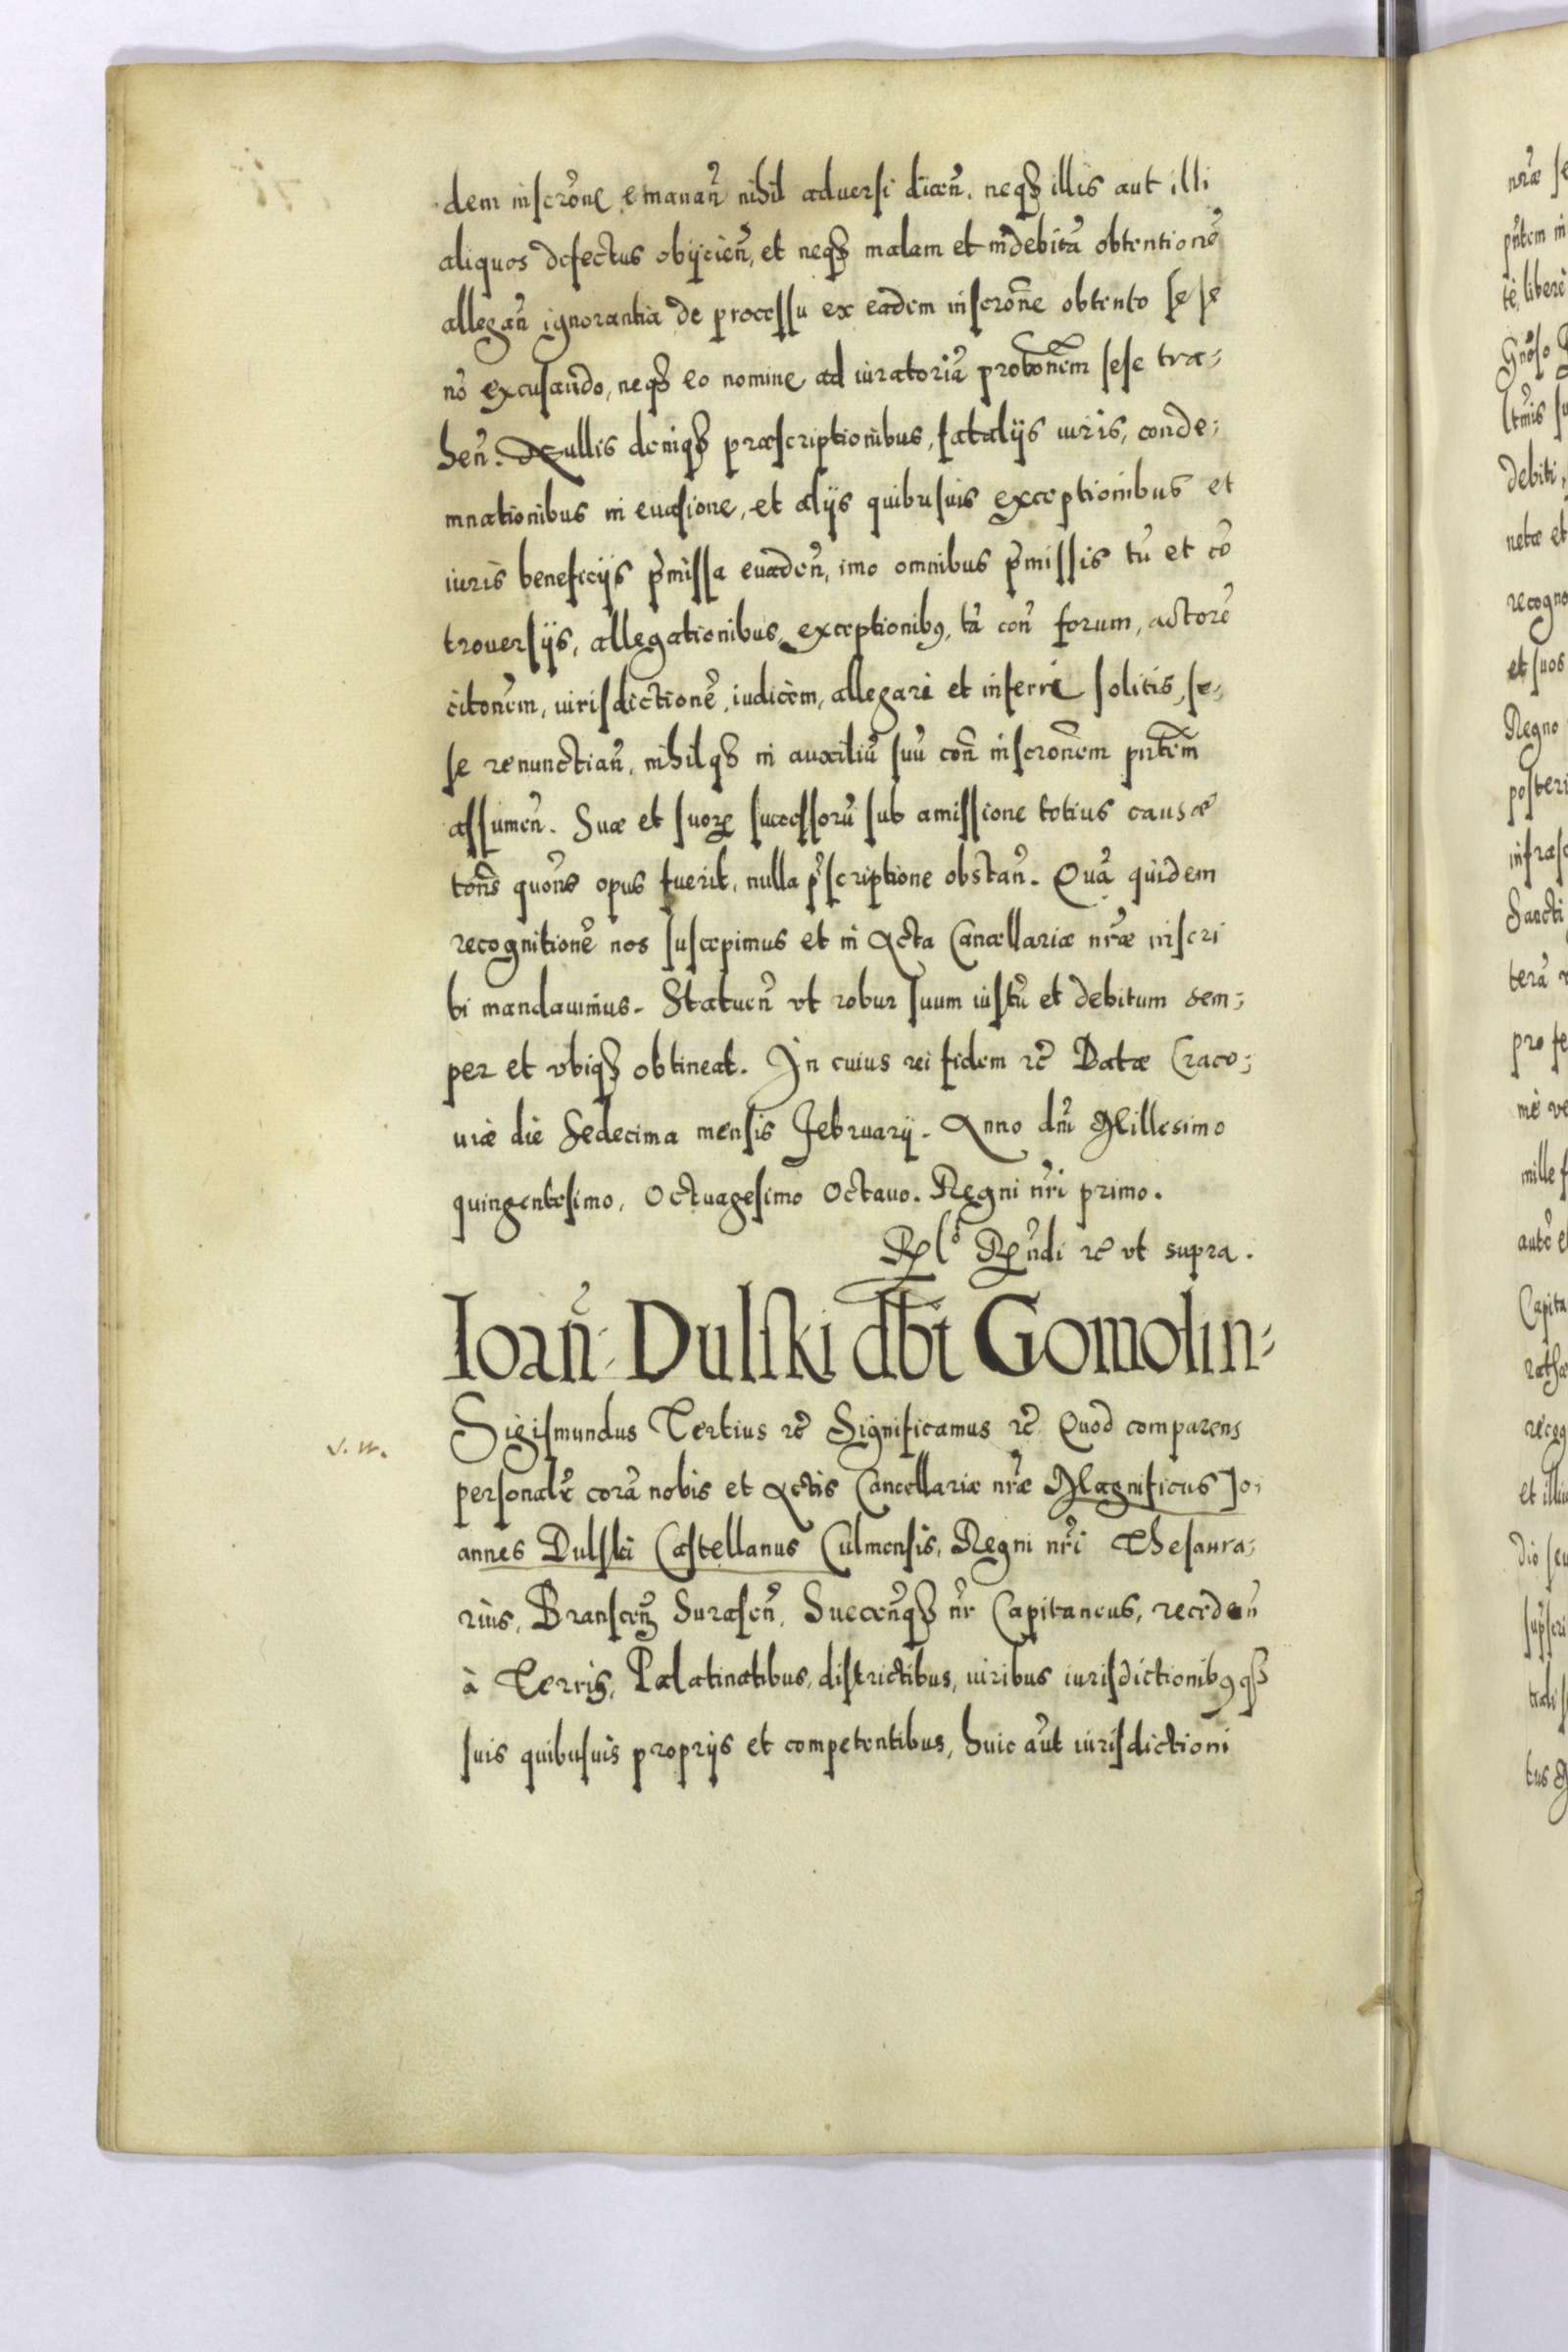 dem inscrõne emanañ nihil aduersi diceñ. neqȝ illis aut illi
aliquos defectus obijcieñ, et neqȝ malam et indebitã obtentionẽ
allegañ ignorantia de processu ex eadem inscrõne obtento se se
nõ excusando, neqȝ eo nomine ad iuratoriã probõnem sese tra-
heñ. Nullis deniqȝ præscriptionibus, fatalijs iuris, conde-
mnationibus in euasione, et alijs quibusuis exceptionibus et
iuris beneficijs p̃missa euadeñ, imo omnibus p̃missis tũ et cõ
trouersijs, allegationibus, exceptionibꝰ, tã coñ forum, actorẽ
citõnem, iurisdictionẽ, iudicem, allegari et inferri solitis, se-
se renunctiañ, nihilqȝ in auxiliũ suũ coñ inscrõnem pñtem
assumeñ. Suæ et suorꝝ successorũ sub amissione totius causæ
toñs quoñs opus fuerit, nulla p̃scriptione obstañ. Quã quidem
recognitionẽ nos suscepimus et in Acta Cancellariæ nr̃æ inscri
bi mandauimus. Statueñ vt robur suum iustũ et debitum sem-
per et vbiqȝ obtineat. In cuius rei fidem rc̃ Datæ Craco-
uiæ die Sedecima mensis February. Anno dñi Millesimo
quingentesimo, Octuagesimo Octauo. Regni nr̃i primo.
Rel° Rñdi rc̃ vt supra.
Ioañ Dulski dbt Gomolin-
v. w.
Sigismundus Tertius rc̃ Significamus rc̃ Quod comparens
personalr̃ corã nobis et Actis Cancellariæ nr̃æ Magnificus Jo-
annes Dulski Castellanus Culmensis, Regni nr̃i Thesaura-
rius, Branscenȝ Suraseñ, Sueceñqȝ nr̃ Capitaneus, recedeñ
à Terris, Palatinatibus, districtibus, iuribus iurisdictionibꝰqȝ
suis quibusuis proprijs et competentibus, huic aũt iurisdictioni